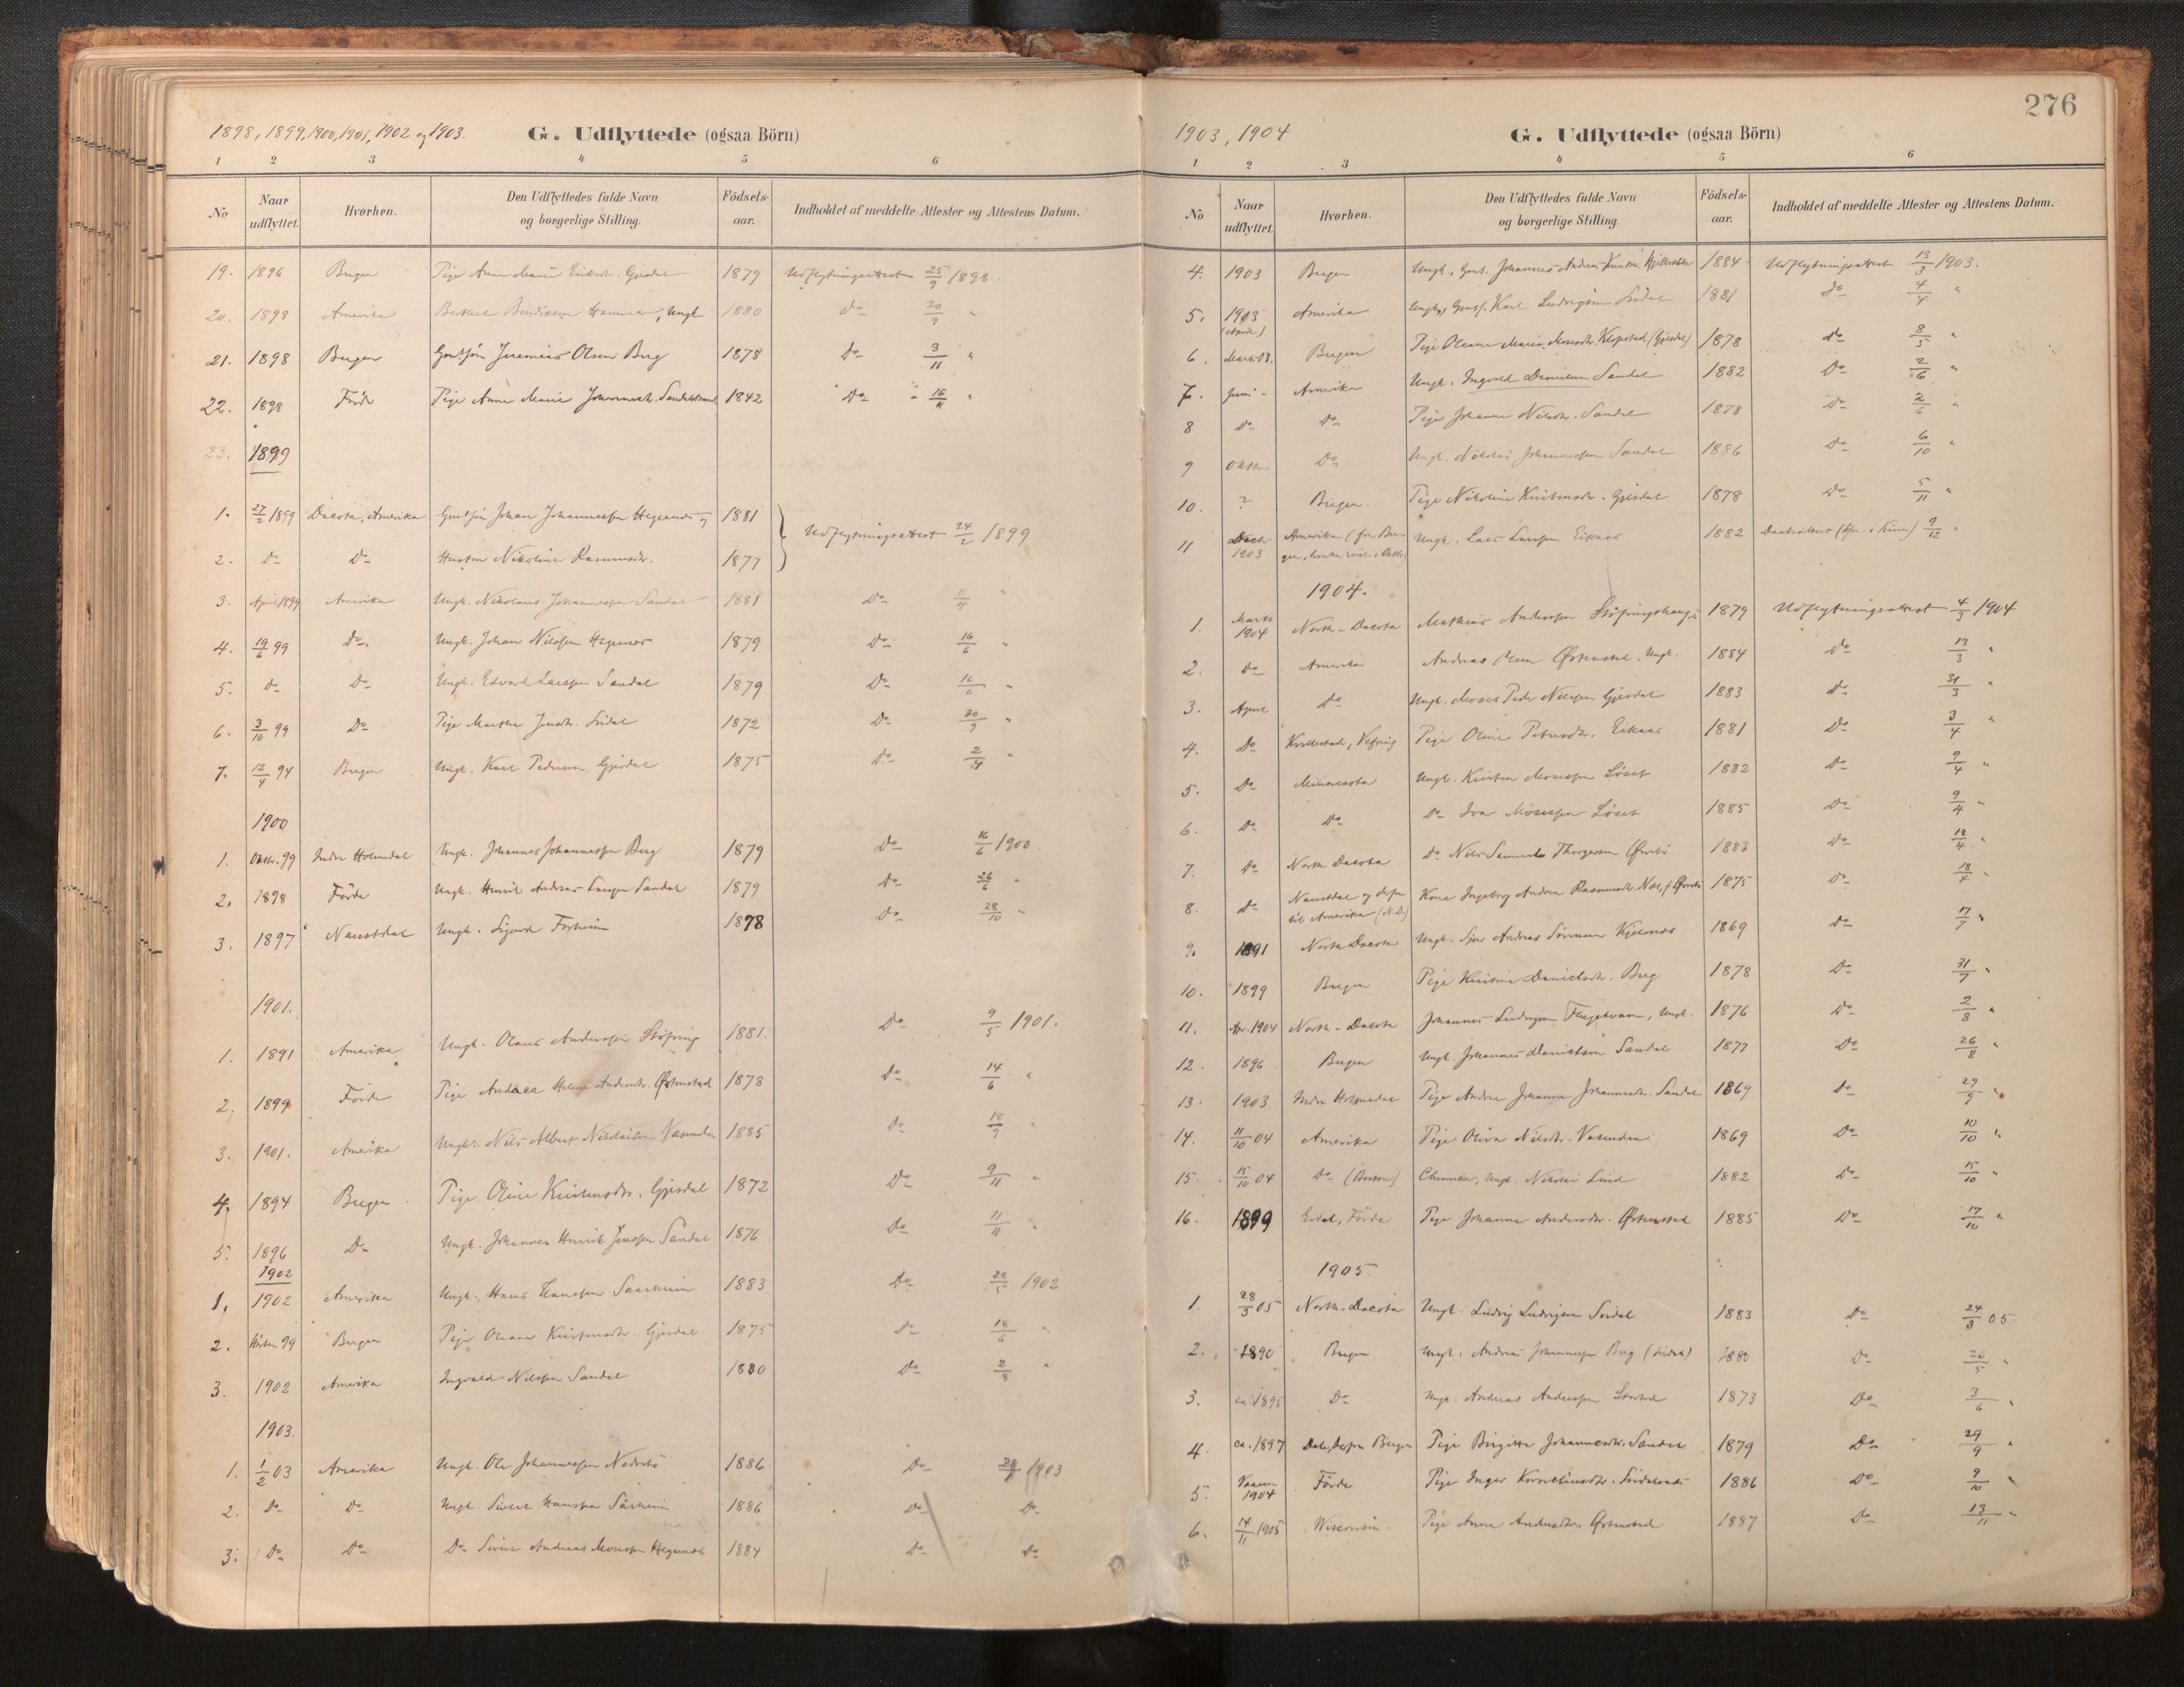 1898, 1899, 1900, 1901, 1902 og 1903.
G. Udflyttede (ogsaa Börn)
1 2 3 4 5 6
No
Naar udflyttet.
Hvorhen.
Den Udflyttedes fulde Navn og borgerlige Stilling.
Födsels-aar.
Indholdet af meddelte Attester og Attestens Datum.
19. 1896 Bergen Pige Anne Marie Gjesdal 1879 Udflytningsattest 25/9 1898.
20. 1898 Amerika Ungk. 1880 Do 20/9 "
21. 1898 Bergen Gmdsøn Jeremias Olsen Berg 1878 Do 3/11 "
22. 1898 Förde Pige Anne Marie 1842 Do 16/11 "
23. 1899
1. 27/2 1899 Dacota, Amerika Gmdsøn Johan Johannessen Hegrenes og 1881
Udflytningsattest 24/2 1899
2. Do Do Hustru Nikoline Rasmusdr. 1877
3. April 1899 Amerika Ungk. Nikolaus Johannessen Sandal 1881 Do 11/4 "
4. 19/6 99 Do. Ungk. Johan Nilssen Hegrenes 1879 Do 16/6 "
5. Do Do Ungk. Edvard Larssen Sandal 1879 Do 16/6 "
6. 3/10 99 Do Pige Marthe Jensdr. Svidal 1872 Do 30/9 "
7. 12/4 94 Bergen Ungk. Karl Pedersen Gjesdal 1875 Do 2/4 "
1900
1. Oktbr. 99 Indre Holmedal Ungk. Johannes Johannessen Berg 1879 Do 16/6 1900.
2. 1898 Förde Ungk. Henrik Andreas Larssen Sandal 1879 Do 26/6 "
3. 1897 Naustdal Ungk. Sigurd 1878 Do 28/10 "
1901.
1. 1891 Amerika Ungk. Olaus Anderssen Støfring 1881. Do 9/5 1901.
2. 1899 Förde Pige Andrea Helene Andersdr. Østenstad 1878 Do 14/6 "
3. 1901. Amerika Ungk. Nils Albert Nikolaisen Vasenden 1885 Do 18/9 "
4. 1894 Bergen Pige Oline Kristensdr. Gjesdal 1872 Do 9/11 "
5. 1896 Do Ungk. Johannes Henrik Jenssen Sandal 1876 Do 11/11 "
1902
1. 1902 Amerika Ungk. Hans Hanssen 1883 Do 28/5 1902
2. Hösten 99 Bergen Pige Oleane Kristensdr. Gjesdal 1875 Do 18/6 "
3. 1902 Amerika Ingvald Nilssen Sandal 1880 Do 2/8 "
1903.
1. 1/2 03 Amerika Ungk. Ole Johannessen Nedrebö 1886 Do 1903
2. Do Do Ungk. Sivert Hanssen 1886 Do Do
3. Do Do Do Andreas Mosessen Hegrenes 1884 Do Do
276
1903, 1904
G. Udflyttede (ogsaa Börn)
1 2 3 4 5 6
No
Naar udflyttet.
Hvorhen.
Den Udflyttedes fulde Navn og borgerlige Stilling.
Födsels-aar.
Indholdet af meddelte Attester og Attestens Datum.
4. 1903 Bergen Ungk., Gmds. Johannes Andreas 1884 Udflytningsattest 13/3 1903.
5. 1903 Amerika Ungk., Gmds. Karl Ludvigsen Svidal 1881 Do 4/4 "
6. Marts 03. Bergen Pige Oleane Marie (Gjesdal) 1878 Do 8/5 "
7. Juni Amerika Ungk. Ingvald Danielsen Sandal 1882 Do 2/6 "
8 Do Do Pige Johanne Nilsdr. Sandal 1878 Do 2/6 "
9 Oktbr. Do Ungk. Nikolai Johannessen Sandal 1886 Do 6/10 "
10. ? Bergen. Pige Nikoline Kristensdr. Gjesdal 1878 Do 5/11 "
11 Decbr 1903 Amerika (fra Bergen, Ungk. Lars Larssen Eikaas 1882 9/12 "
1904.
1. Marts 1904 North-Dacota Mathias Anderssen Støfringshaugen 1879 Udflytningsattest 4/3 1904
2. Do Amerika Andreas Olsen Østenstad, Ungk. 1884 Do 13/3 "
3. April Do Ungk. Moses Peder Nilssen Gjesdal 1883 Do 31/3 "
4. Do Kvellestad, Vefring Pige Oline Petersdr. Eikaas 1881 Do 3/4 "
5. Do Minnesota Ungk. Kristen Mosessen Løset 1882 Do 9/4 "
6. Do Do Do Ivar Mosessen Løset 1885 Do 9/4 "
7. Do North Dacota Do Nils Samuel Thorgersen Øvrebö 1883 Do 18/4 "
8. Do Naustdal og derfra til Amerika (N.D.) Kone Ingeborg Andrea Rasmusdr. Øvrebö 1875 Do 18/4 "
9. 1891 North Dacota Ungk. Andreas Kjelnes 1869 Do 17/7 "
10. 1899 Bergen Pige Kristine Danielsdr. Berg 1878 Do 31/7 "
11. Apr. 1904 North-Dacota Johannes Ludvigsen Flugekvam, Ungk. 1876 Do 2/8 "
12. 1896 Bergen Ungk. Johannes Danielsen Sandal 1877 Do 26/8 "
13. 1903 Indre Holmedal Pige Andrea Johanne Johannesdr. Sandal 1869 Do 29/9 "
14. 11/10 04 Amerika Pige Oliva Nilsdr. Vasenden 1869 Do 10/10 "
15. 15/10 04 Do (Boston) Ungk. Nikolai Lind 1882 Do 15/10 "
16. 1899 Erdal, Förde Pige Johanne Andersdr. Østenstad 1885 Do 17/10 "
1905.
1. 28/3 05 North-Dacota Ungk. Ludvig Ludvigsen Svidal 1883 Do 24/3 05
2. 1890 Bergen Ungk. Andreas Johannessen Berg (Svidal) 1880 Do 26/5 "
3. ca. 1895 Do Ungk. Andreas Anderssen 1873 Do 3/6 "
4. ca. 1897 Dale, derfra Bergen Pige Birgitte Johannesdr. Sandal 1879 Do 29/9 "
5. Vaaren 1904 Förde Pige Inger Korneliusdr. 1886 Do 9/10 "
6. 14/11 1905 Wisconsin. Pige Anna Andersdr. Østenstad 1887 Do 13/11 "